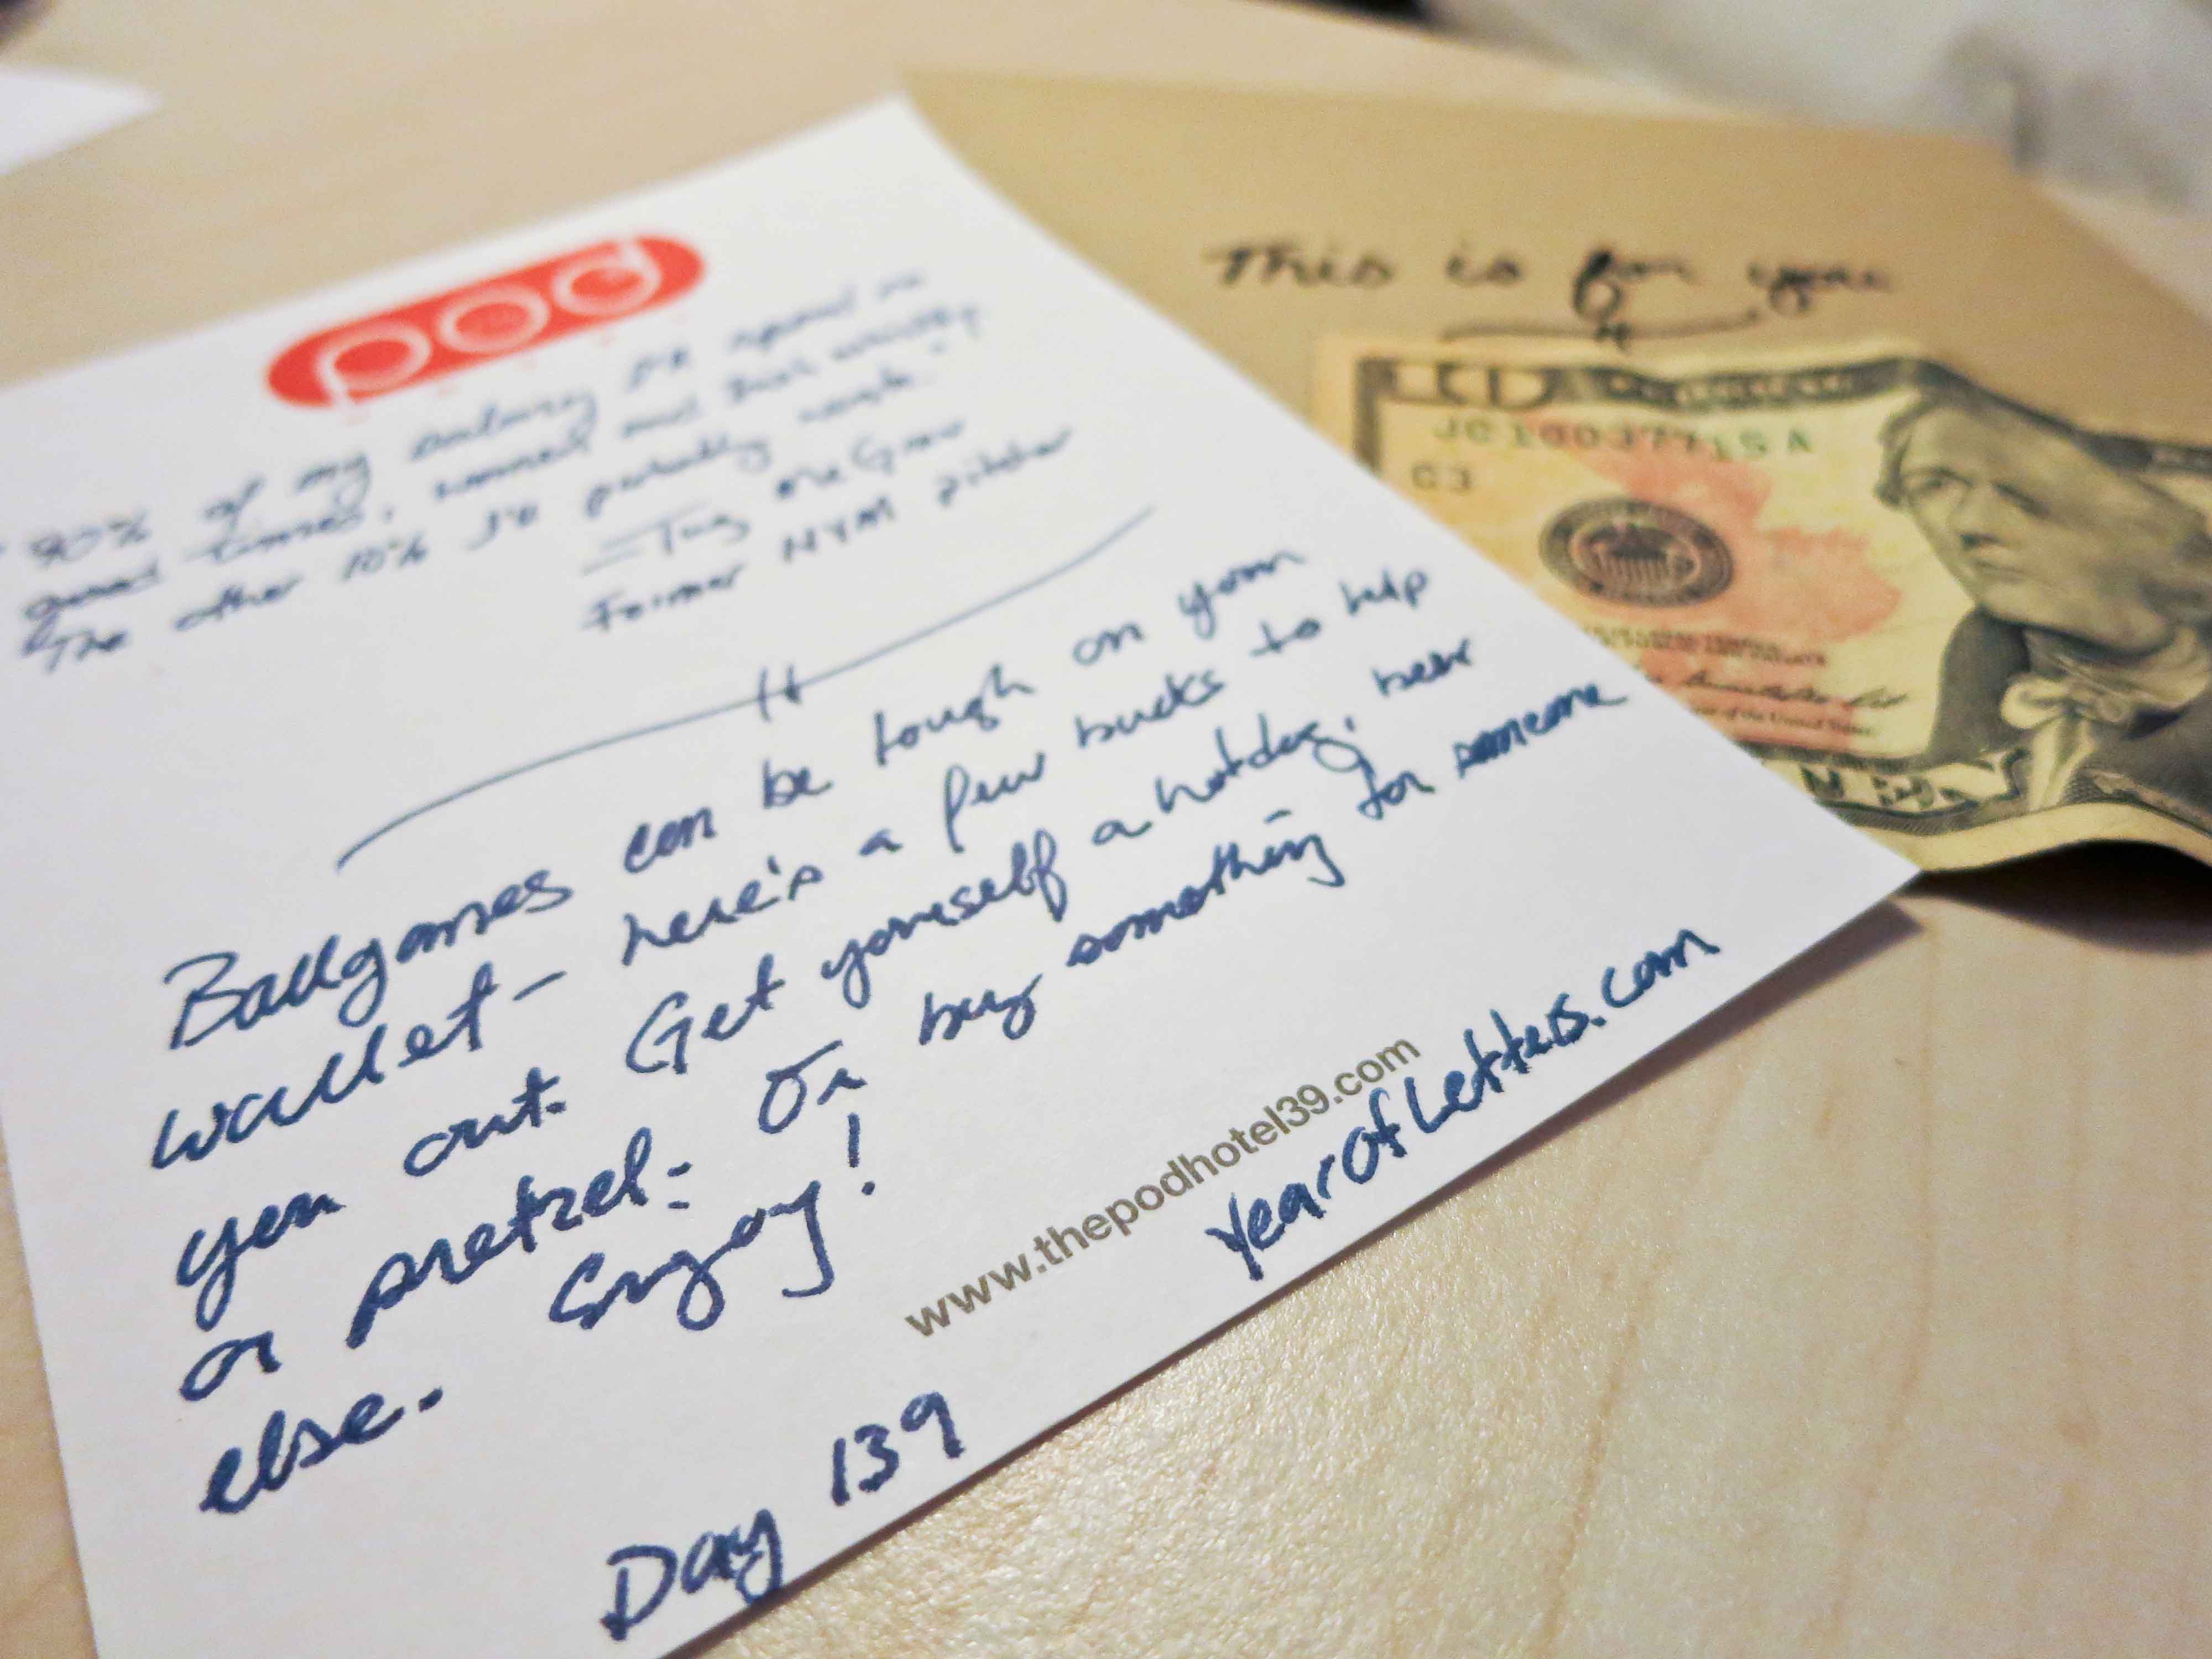 pod
"90% of my salary I'll spend on
good times, women and Irish whiskey.
The other 10% I'll probably waste."
—Tug McGraw
Former NYM pitcher
Ballgames can be tough on your
wallet – here's a few bucks to help
you out. Get yourself a hotdog, beer
or pretzel. Or buy something for someone
else. Enjoy!
www.thepodhotel39.com
YearOfLetters.com
Day 139
This is for you
JG16037715A
G3